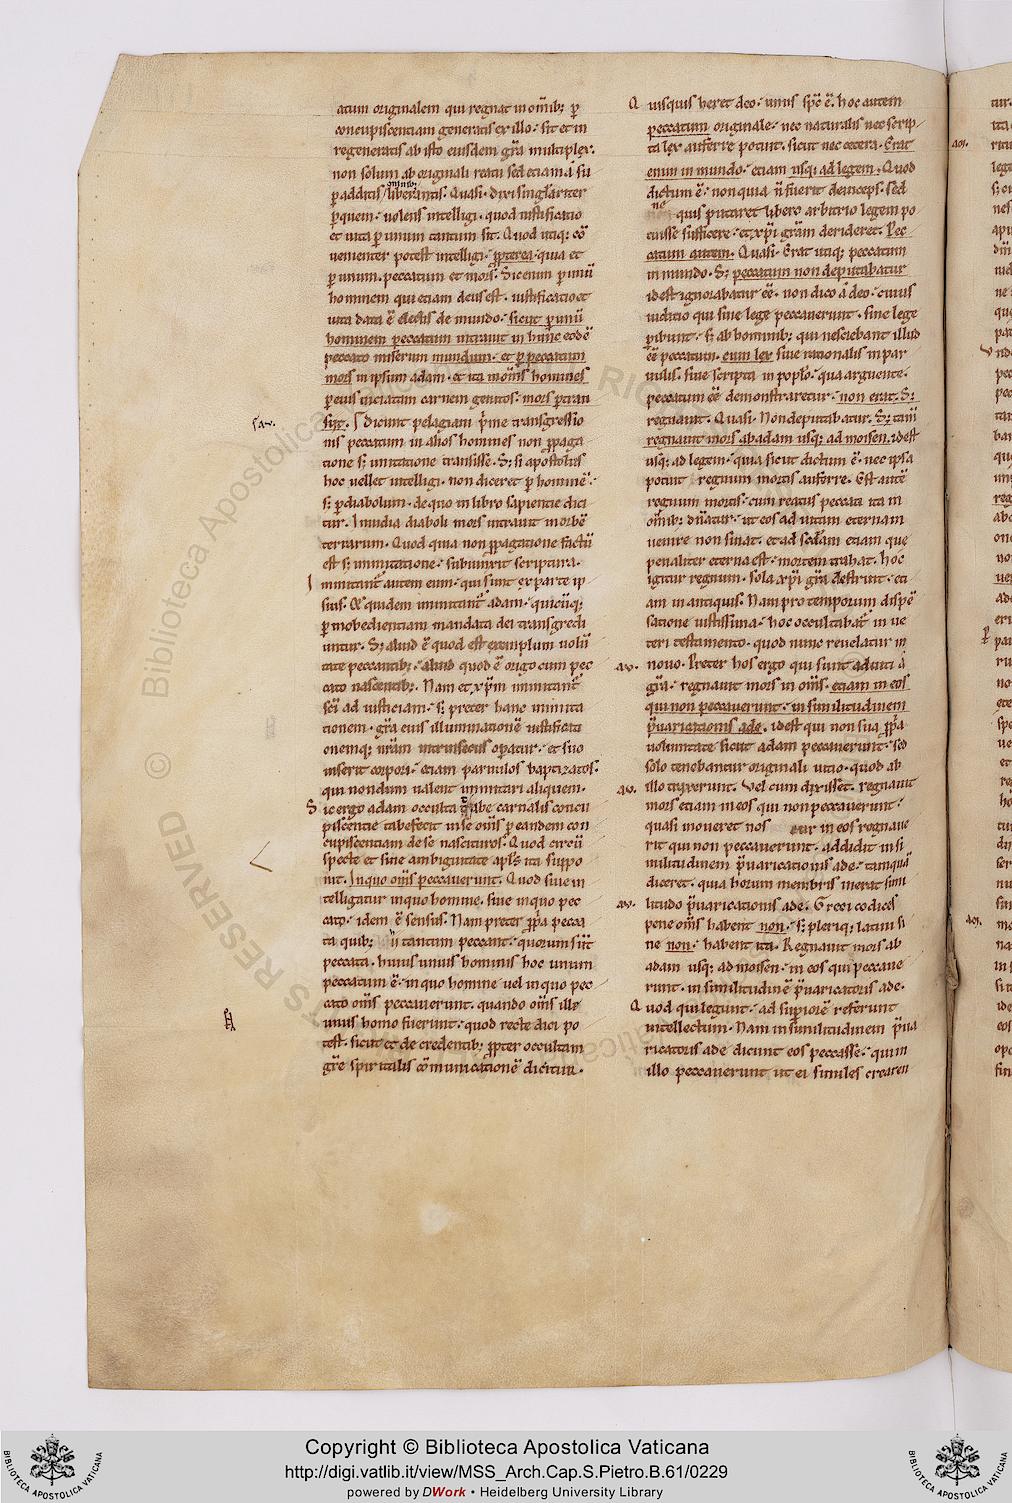 atum originalem qui regnat in om̅ib; p̲
concupiscentiam generatis ex illo· sit et in
regeneratis ab isto eiusdem gr̅a multiplex·
non solum ab originali reatu sed etiam a su
p̲additis liberantis· Quasi· dixi singlariter
p̲ quem· uolens intelligi· quod iustificatio
et uita p̲ unum tantum sit· Quod utiq; co̅
uenienter potest intelligi· p̲pterea· quia et
p̲ unum· peccatum et mors· Sic enim p̲ unu̅
hominem qui etiam deus est· iustificatio et
uita data e̅ electis de mundo· sicut p̲ unu̅
hominem peccatum intrauit in hunc eode̅
peccato miserum mundum· et p̲ peccatum
mors in ipsum adam· et ita in om̅s homines
p̲ eius uiciatam carnem genitos· mors p̲tran
siit· Dicunt pelagiani p̲me transgressio
nis peccatum in alios homines non p̲paga
tione s; imitatione transisse· S; si apostolus
hoc uellet intelligi· non diceret p̲ homine̅·
s; p̲ diabolum· de quo in libro sapientie dici
tur· Inuidia diaboli mors intrauit in orbe̅
terrarum· Quod quia non p̲pagatione factu̅
est s; imitatione· subiunxit scriptura·
Imitant̅ autem eum· qui sunt ex parte ip
sius· Et quidem imitant̅ adam· quicu̅q;
p̲ inobedientiam mandata dei transgredi
untur· S; aliud e̅ quod est exemplum uolu̅
tate peccantib;· aliud quod e̅ origo cum pec
cato nascentib;· Nam et xp̅m imitant̅
sc̅i ad iusticiam· s; preter hanc imita
tionem· gr̅a eius illuminatione̅ iustificati
onemq; nr̅am intrinsecus op̲atur· et suo
inserit corpori· etiam paruulos baptizatos·
qui nondum ualent imitari aliquem·
Sic ergo adam occulta tabe carnalis concu
piscentie tabefecit in se om̅s p̲ eandem con
cupiscentiam de se nascituros· Quod circu̅
specte et sine ambiguitate apl̅s ita suppo
nit· In quo om̅s peccauerunt· Quod siue in
telligatur in quo homine· siue in quo pec
cato· idem e̅ sensus· Nam preter p̲pa pecca
ta quib; ii tantum peccant· quorum su̅t
peccata· huius unius hominis hoc unum
peccatum e̅· in quo homine uel in quo pec
cato om̅s peccauerunt· quando om̅s ille
unus homo fuerunt· quod recte dici po
test· sicut et de credentib; p̲pter occultam
gr̅e spiritalis co̅municatione̅ dicitur·
Quisquis heret deo· unus sp̅c e̅· hoc autem
peccatum originale· nec naturalis nec scrip
ta lex auferre potuit· sicut nec cetera· Erat
enim in mundo· etiam usq; ad legem· Quod
dictum e̅· non quia n̅ fuerit deinceps· sed
ne quis putaret libero arbitrio legem po
tuisse sufficere· et xp̅i gr̅am derideret· Pec
catum autem· Quasi· Erat utiq; peccatum
in mundo· S; peccatum non deputabatur
id est ignorabatur e̅e· non dico a deo· cuius
iudicio qui sine lege peccauerunt· sine lege
p̲ibunt· s; ab hominib; qui nesciebant illud
e̅e peccatum· cum lex siue rationalis in par
uulis· siue scripta in pop̅lo· qua arguente·
peccatum e̅e demonstraretur· non erat· S;
regnauit· Quasi· Non deputabatur· S; tam̅
regnauit mors ab adam usq; ad moisen· id est
usq; ad legem· quia sicut dictum e̅· nec ipsa
potuit regnum mortis auferre· Est aute̅
regnum mortis· cum reatus peccati ita in
om̅ib; dn̅atur· ut eos ad uitam eternam
uenire non sinat· et ad sc̅dam etiam que
penaliter eterna est· mortem trahat· hoc
igitur regnum· sola xp̅i gr̅a destruit· eti
am in antiquis· Nam pro temporum dispe̅
satione iustissima· hoc occultabat̅ in ue
teri testamento· quod nunc reuelatur in
nouo· Preter hos ergo qui sunt adiuti a
gr̅a· regnauit mors in om̅s· etiam in eos
qui non peccauerunt· in similitudinem
p̅uaricationis ade· id est qui non sua p̲pa
uoluntate sicut adam peccauerunt· sed
solo tenebantur originali uitio· quod ab
illo traxerunt· Vel cum dixisset· regnauit
mors etiam in eos qui non peccauerunt·
quasi moueret nos cur in eos regnaue
rit qui non peccauerunt· addidit in si
militudinem p̅uaricationis ade· tamqua̅
diceret· quia horum membris inerat simi
litudo p̅uaricationis ade· Greci codices
pene om̅s habent non· s; pleriq; latini si
ne non· habent ita· Regnauit mors ab
adam usq; ad moisen· in eos qui peccaue
runt· in similitudine̅ p̅uaricatoris ade·
Quod qui legunt· ad sup̲iore̅ referunt
intellectum· Nam in similitudinem p̅ua
ricatoris ade dicunt eos peccasse· qui in
illo peccauerunt ut ei similes crearen
© Biblioteca Apostolica Vaticana
RIGHTS RESERVED
Copyright © Biblioteca Apostolica Vaticana
http://digi.vatlib.it/view/MSS_Arch.Cap.S.Pietro.B.61/0229
powered by DWork • Heidelberg University Library
BIBLIOTECA APOSTOLICA VATICANA
BIBLIOTECA APOSTOLICA VATICANA